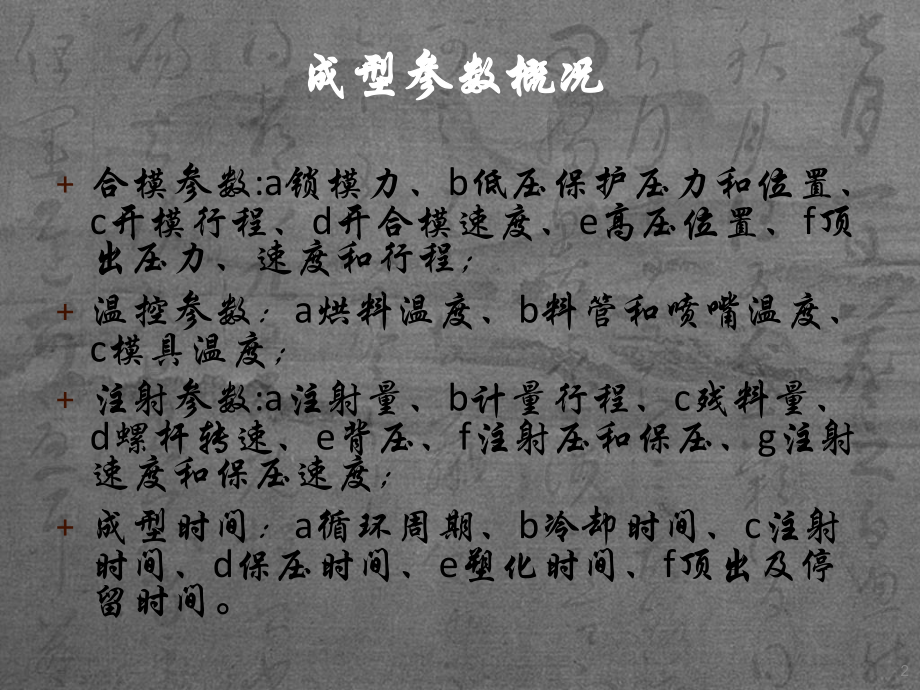 成型参数概况
+ 合模参数:a锁模力、b低压保护压力和位置、
c开模行程、d开合模速度、e高压位置、f顶
出压力、速度和行程；
+ 温控参数：a烘料温度、b料管和喷嘴温度、
c模具温度；
+ 注射参数:a注射量、b计量行程、c残料量、
d螺杆转速、e背压、f注射压和保压、g注射
速度和保压速度；
+ 成型时间：a循环周期、b冷却时间、c注射
时间、d保压时间、e塑化时间、f顶出及停
留时间。
2